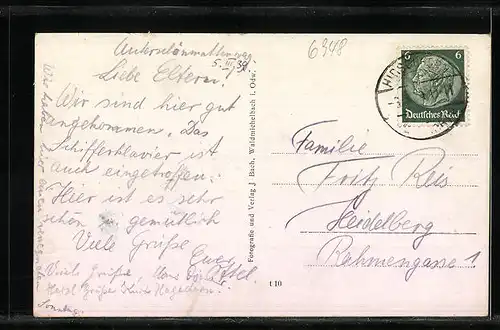 Unterschönmattenweg
5. III. 39.
Liebe Eltern!
Wir sind hier gut
angekommen. Das
Schifferklavier ist
auch eingetroffen.
Hier ist es sehr
schön gemütlich
Viele Grüße
Euer
Viele Grüße,
Herzl. Grüße
Sonntag
Wir haben hier einen
6948
Fotografie und Verlag J. Bach, Waldmichelbach i. Odw.
t 10
6 6
Deutsches Reich
Familie
Fritz Reis
Heidelberg
Rahmengasse 1